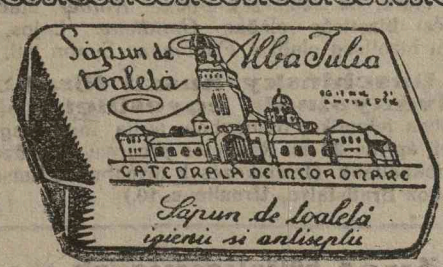 Săpun de
toaletă
Alba Julia
IGIENIC ŞI
ANTISEPTIC
CATEDRALA DE INCORONARE
Săpun de toaletă
igienic si antiseptic